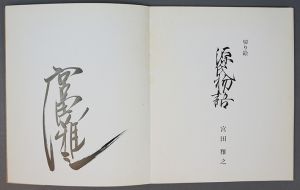 切り絵
源氏物語
宮田雅之
宮田雅之